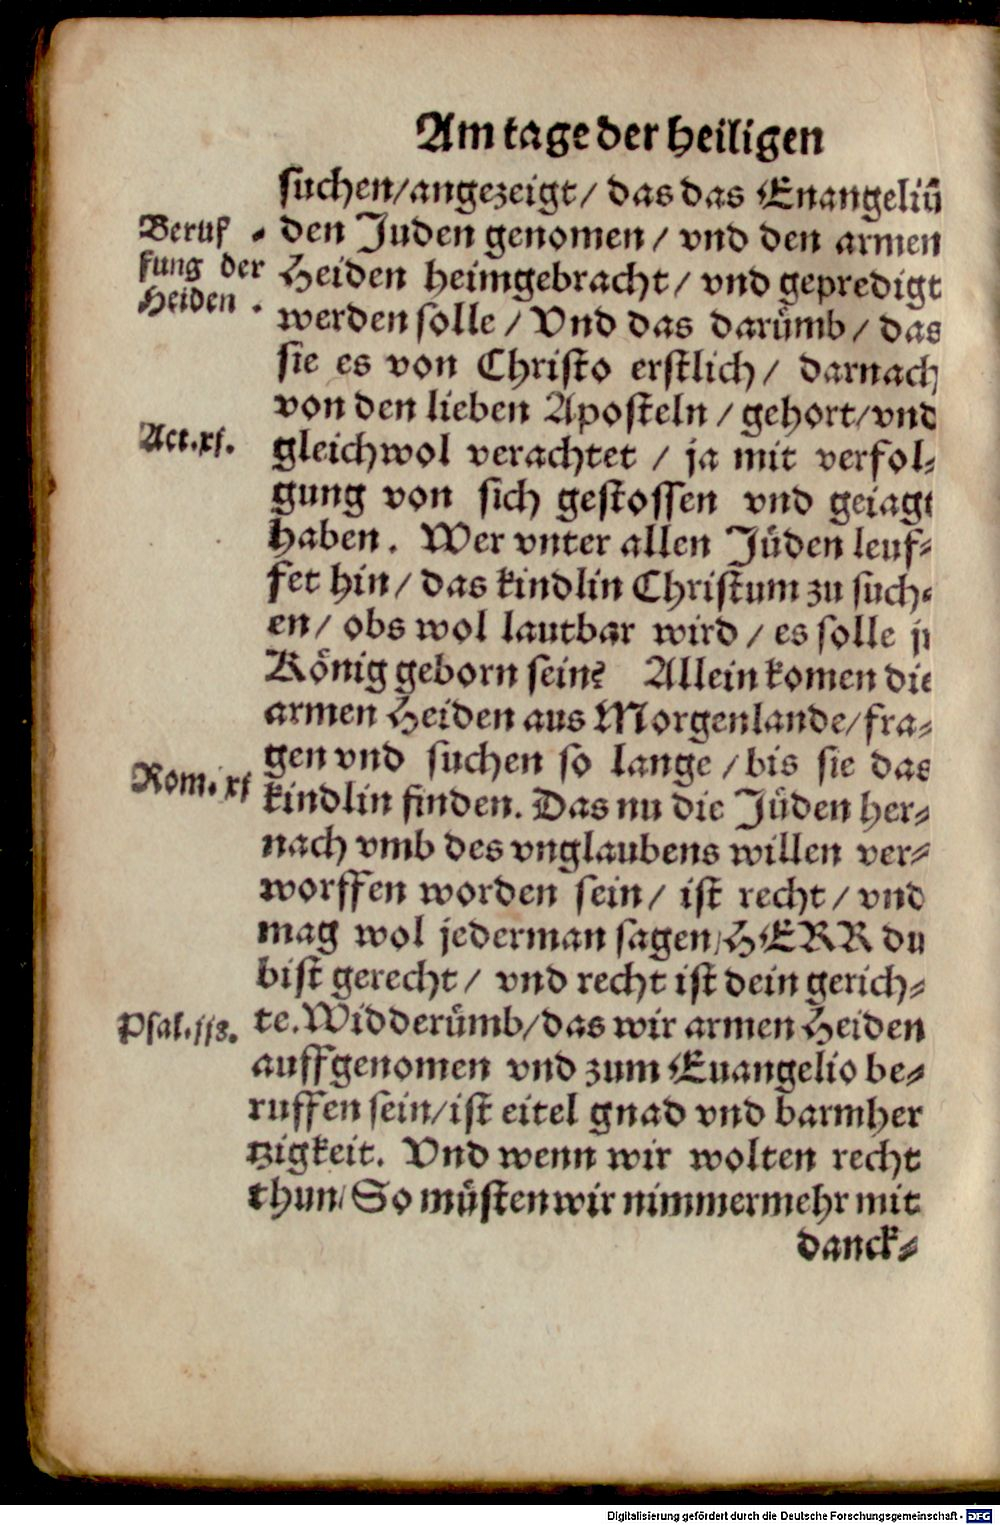 Am tage der heiligen
suchen/angezeigt/ das das Euangeliũ
Beruf⸗
fung der
Heiden.
den Juden genomen/ vnd den armen
Heiden heimgebracht/ vnd gepredigt
werden solle/ Vnd das darümb/ das
sie es von Christo erstlich/ darnach
von den lieben Aposteln/ gehort/vnd
Act.xj.
gleichwol verachtet/ ja mit verfol⸗
gung von sich gestossen vnd geiagt
haben. Wer vnter allen Jüden leuf⸗
fet hin/ das kindlin Christum zu such⸗
en/ obs wol lautbar wird/ es solle jr
König geborn sein? Allein komen die
armen Heiden aus Morgenlande/fra⸗
gen vnd suchen so lange/bis sie das
Rom.xj
kindlin finden. Das nu die Jüden her⸗
nach vmb des vnglaubens willen ver⸗
worffen worden sein/ ist recht/ vnd
mag wol jederman sagen/HERR du
bist gerecht/ vnd recht ist dein gerich⸗
Psal.118.
te. Widderümb/das wir armen Heiden
auffgenomen vnd zum Euangelio be⸗
ruffen sein/ist eitel gnad vnd barmher
tzigkeit. Vnd wenn wir wolten recht
thun/ So müsten wir nimmermehr mit
danck⸗
Digitalisierung gefördert durch die Deutsche Forschungsgemeinschaft - DFG